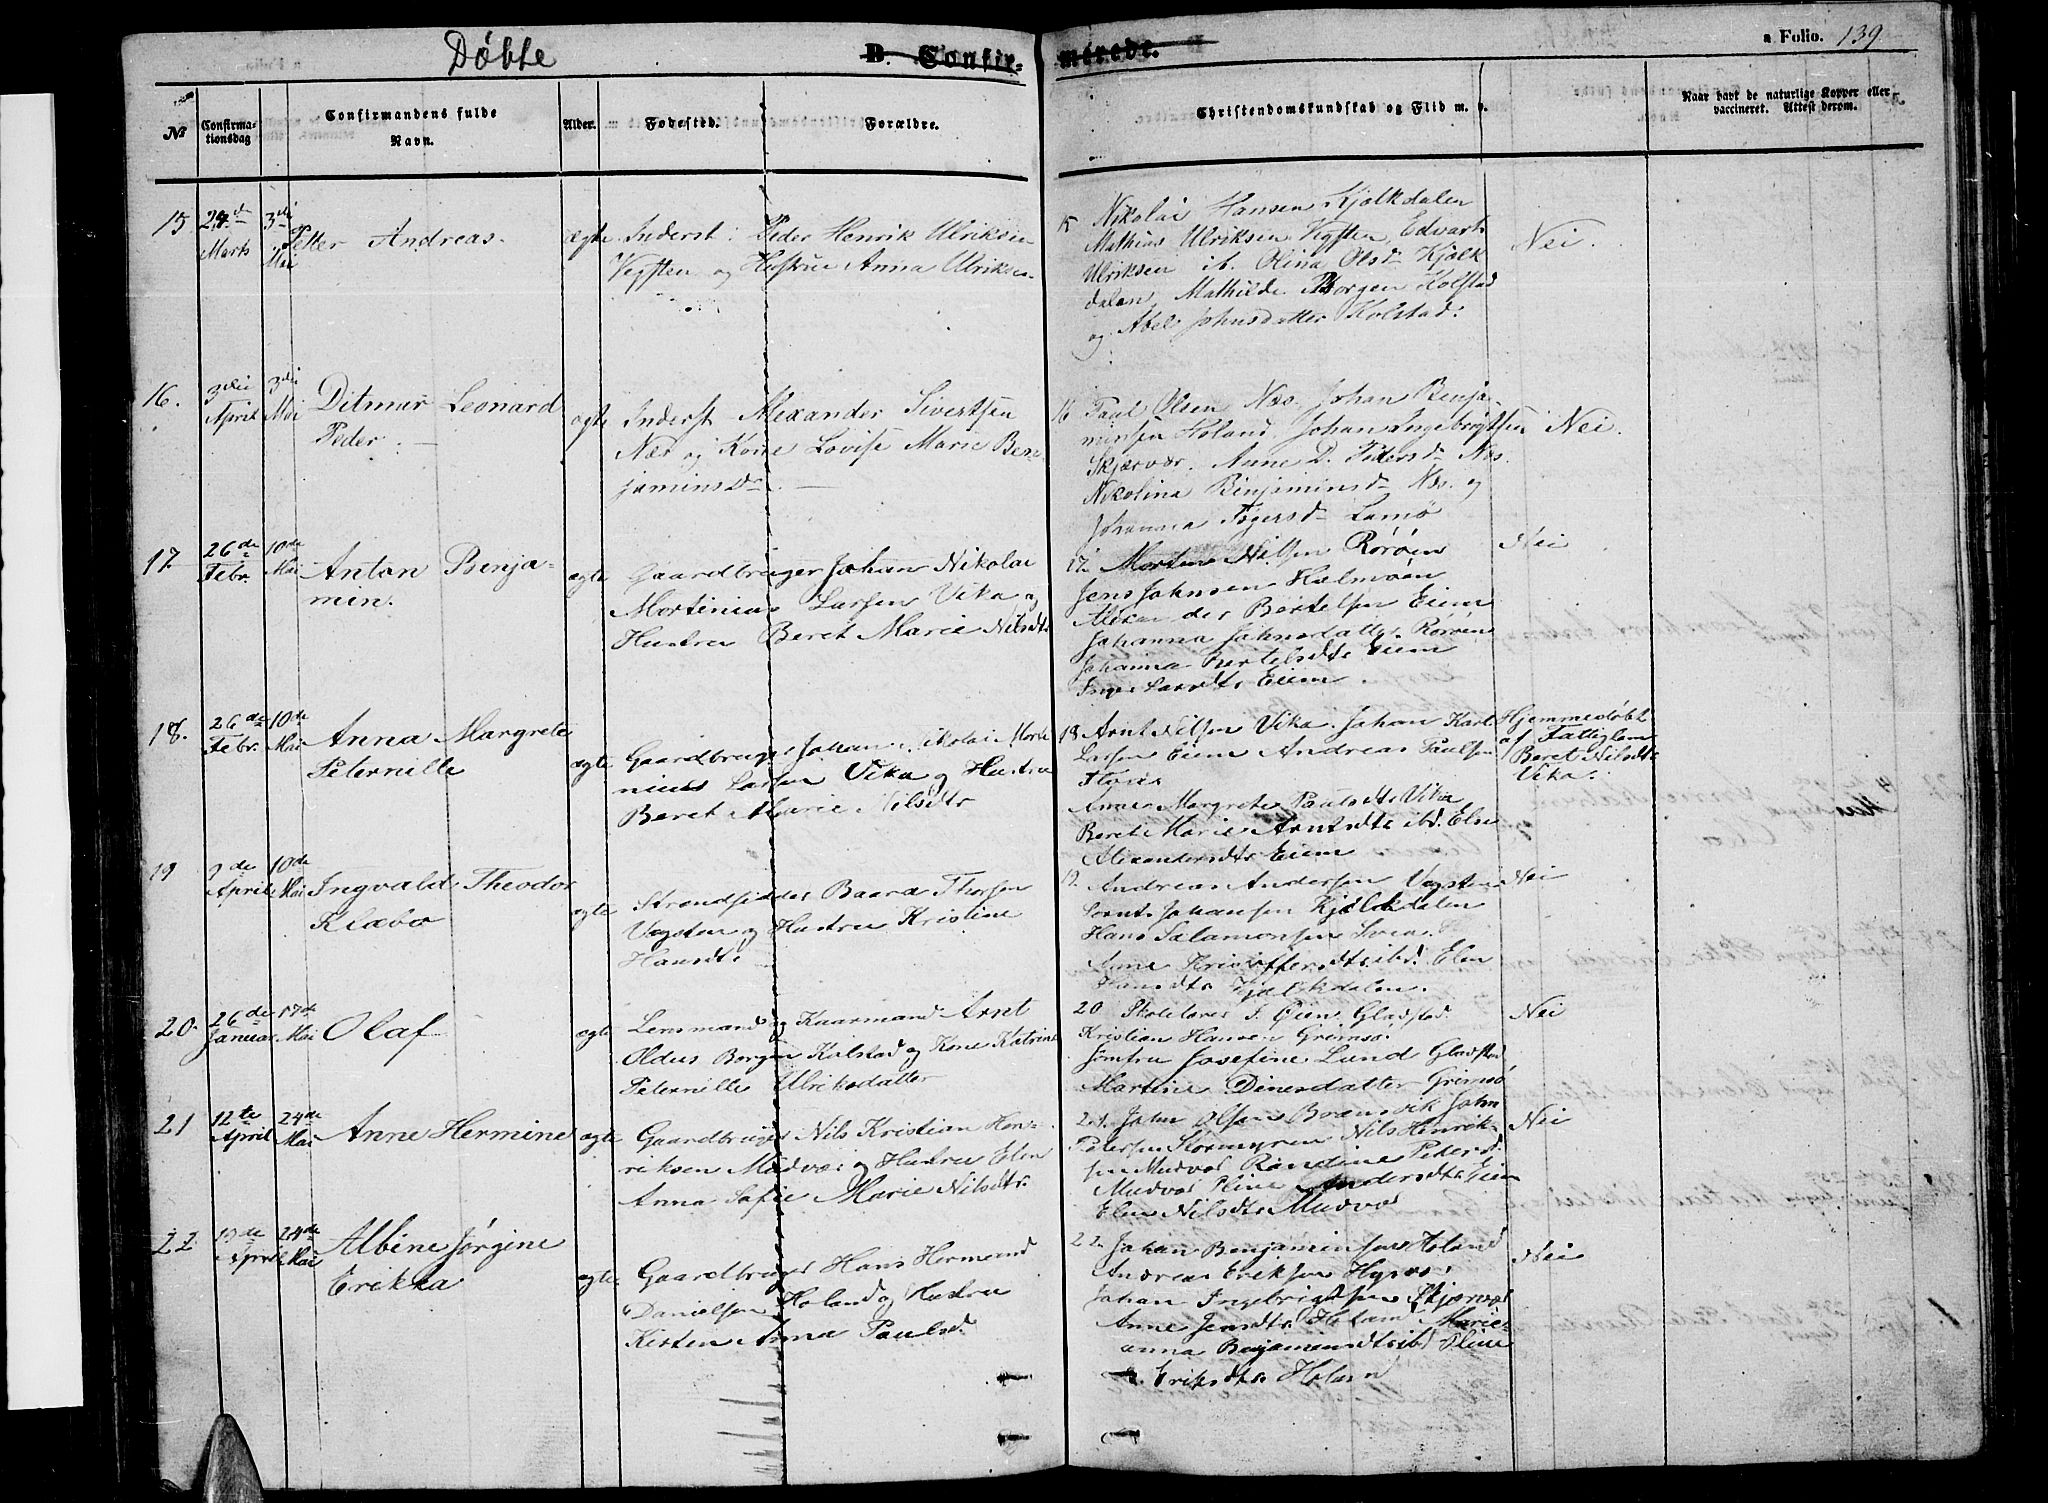 Døbte
D. Confir-
merede.
a Folio. 139
№
Confirma-
tionsdag
Confirmandens fulde
Navn.
Alder.
Fødested.
Forældre.
Christendomskundskab og Flid m. v.
Naar havt de naturlige Kopper eller
vaccineret. Attest derom.
15 24de Marts 3die Mai
Petter Andreas.
ægte
Inderst Peder Henrik Ulriksen
Vegsten og Hustrue Anna Ulriksd.
15 Nikolai Hansen Kjølkdalen
Mathias Ulriksen Vegsten, Edvart
Ulriksen ib. Olina Olsd. Kjølk
dalen, Mathilde Borgen Kolstad
og Abel Johnsdatter Kolstad.
Nei.
16. 3die April 3die Mai
Ditmar Leonard
Peder.
ægte
Inderst Alexander Sivertsen
Næs og Kone Lovise Marie Ben-
jaminsdr.
16 Paul Olsen Næs. Johan Benja-
minsen Holand. Johan Ingebrigtsen
Skjærvær. Anne D. Pedersd. Næs.
Nikolina Benjaminsd. Næs. og
Johanna
Nei.
17 26de Febr. 10de Mai
Anton Benja-
min.
ægte
Gaardbruger Johan Nikolai
Mortinius Larsen Vika og
Hustru Beret Marie Nilsdtr
17. Morten Nilsen Rørøen
Jens Johnsen Halmøen
Alexander Bertelsen Eiem
Johanna Johnsdatter Rørøen
Johanna Bertelsdtr Eiem
Inger Larsdtr Eiem.
Nei
18. 26de Febr. 10de Mai
Anna Margrete
Peternille
ægte
Gaardbruger Johan Nikolai Morti
nius Larsen Vika og Hustru
Beret Marie Nilsdtr
18 Arnt Nilsen Vika. Johan Karl
Larsen Eiem Andreas Paulsen
Anne Margrete Paulsdtr Vika
Beret Marie Arntsdtr ibd. Else
Alexandersdtr Eiem
Hjemmedøbt
af Fattiglem
Beret Nilsdtr
Vika.
19 9de April 10de Mai
Ingvald Theodor
Klæbo
ægte
Strandsidder Baard Thorsen
Vegsten og Hustru Kristine
Hansdtr
19. Andreas Andersen Vegsten
Johansen Kjølkdalen
Hans Salamonsen
Anne Kristoffersdtr ibd. Elen
Hansdtr Kjølkdalen.
Nei
20. 26de Januar 17de Mai
Olaf
ægte
Lensmand og Kaarmand Arnt
Oldus Borgen Kolstad og Kone Katrine
Peternille Ulriksdatter
20 Skolelærer J. Øien Gladstad.
Kristian Hansen Grimsø.
Jomfru Josefine Lund Gladstad
Martine Dinesdatter Grimsø
Nei
21 12te April 24de Mai
Anne Hermine
ægte
Gaardbruger Nils Kristian Hen-
riksen Mudvær og Hustru Elen
Anna Sofie Marie Nilsdtr.
21. John Olsen Brænsvik John
Petersen Stormyren Nils Henrik-
sen Mudvær Randine Pedersd.
Mudvær Pline Andersdtr Eiem
Elen Nilsdtr Mudvær
Nei
22 13de April 24de Mai
Albine Jørgine
Erikka
ægte
Gaardbruger Hans Hermand
Danielsen Holand og Hustru
Kirsten Anna Paulsd.
22. Johan Benjaminsen Holand
Andreas Eriksen
Johan Ingebrigtsen Skjærvær
Anne Jensdtr Holand Marie-
anna Benjaminsdtr ibd Pline
Eriksdtr Holand
Nei